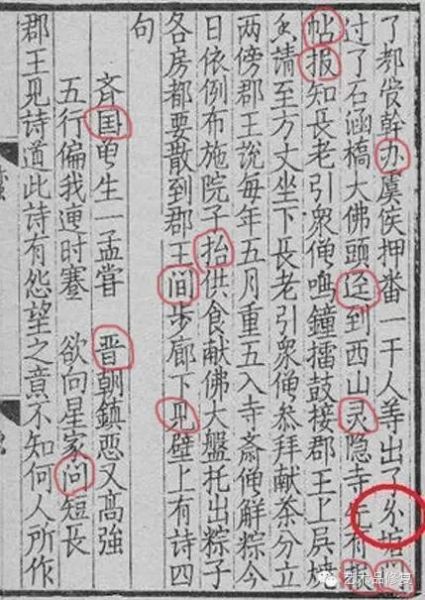 了都管幹办虞侯押番一干人等出了塘门
过了石涵橋大佛頭迳到西山灵隐寺先有报
帖报知長老引衆僧鳴鐘擂鼓接郡王上殿燒
香請至方丈坐下長老引衆僧叅拜献茶分立
两傍郡王說每年五月重五入寺斎僧解粽今
日依例布施院子抬供食献佛大盤托出粽子
各房都要散到郡王间步廊下见壁上有詩四
句
斉国曽生一孟嘗 晋朝鎮悪又高強
五行偏我遭时蹇 欲向星家问短長
郡王見詩道此詩有怨望之意不知何人所作
艺术品修复